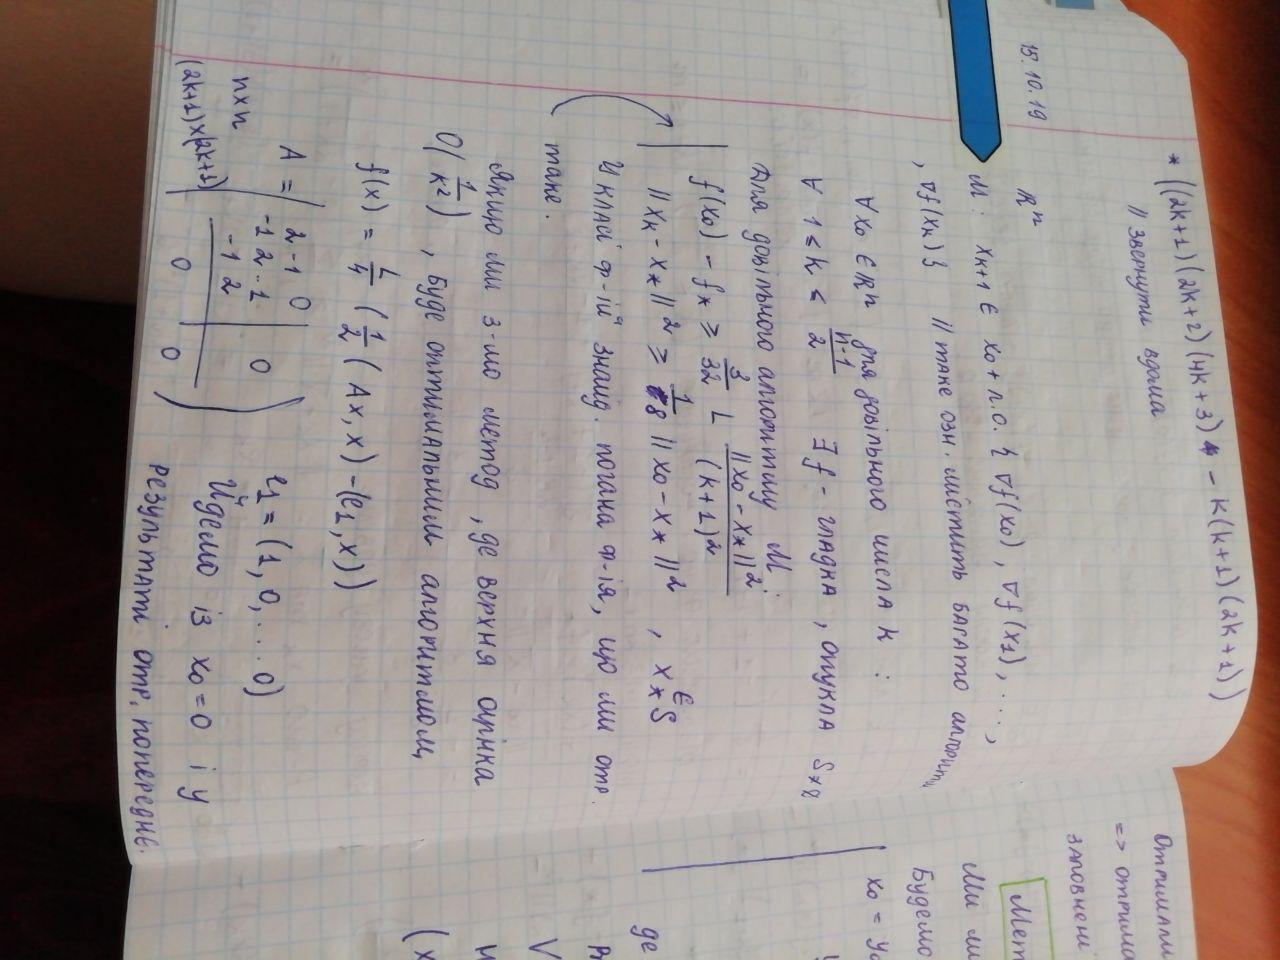 * ((2k+1)(2k+2)(4k+3) - k(k+1)(2k+1))
// Звернути вдома
15.10.19
Rⁿ
M: x_{k+1} ∈ x₀ + л.о. { ∇f(x₀), ∇f(x₁), ...,
, ∇f(x_k) } // таке озн. містить багато алгоритм
∀ x₀ ∈ Rⁿ для довільного числа k :
∀ 1 ≤ k ≤ (n-1)/2 ∃ f - гладка, опукла
Для довільного алгоритму M :
f(x₀) - f* ≥ 3/32 L ||x₀ - x*||² / (k+1)²
||x_k - x*||² ≥ 1/8 ||x₀ - x*||² , x* ∈ S
У класі ф-ій знайд. погана ф-ія, що ми отр.
таке.
Якщо ми з-мо метод, де верхня оцінка
O(1/k²), буде оптимальним алгоритмом,
f(x) = L/4 (1/2 (Ax, x) - (e₁, x))
A =
2 -1 0
-1 2 -1 0
-1 2
0 0
n×n
(2k+1)×(2k+1)
e₁ = (1, 0, ... 0)
Йдемо із x₀ = 0 і у
результаті отр. попереднє.
Отримали
=> отрима
заповнені
Мет
Ми ли
Будемо
x₀ = y₀
де
V
(x